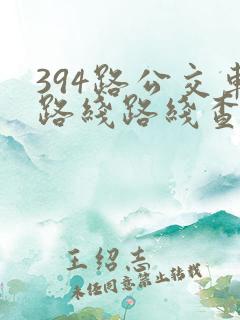 394路公交车
路线路线查
王绍志
未经同意禁止转载